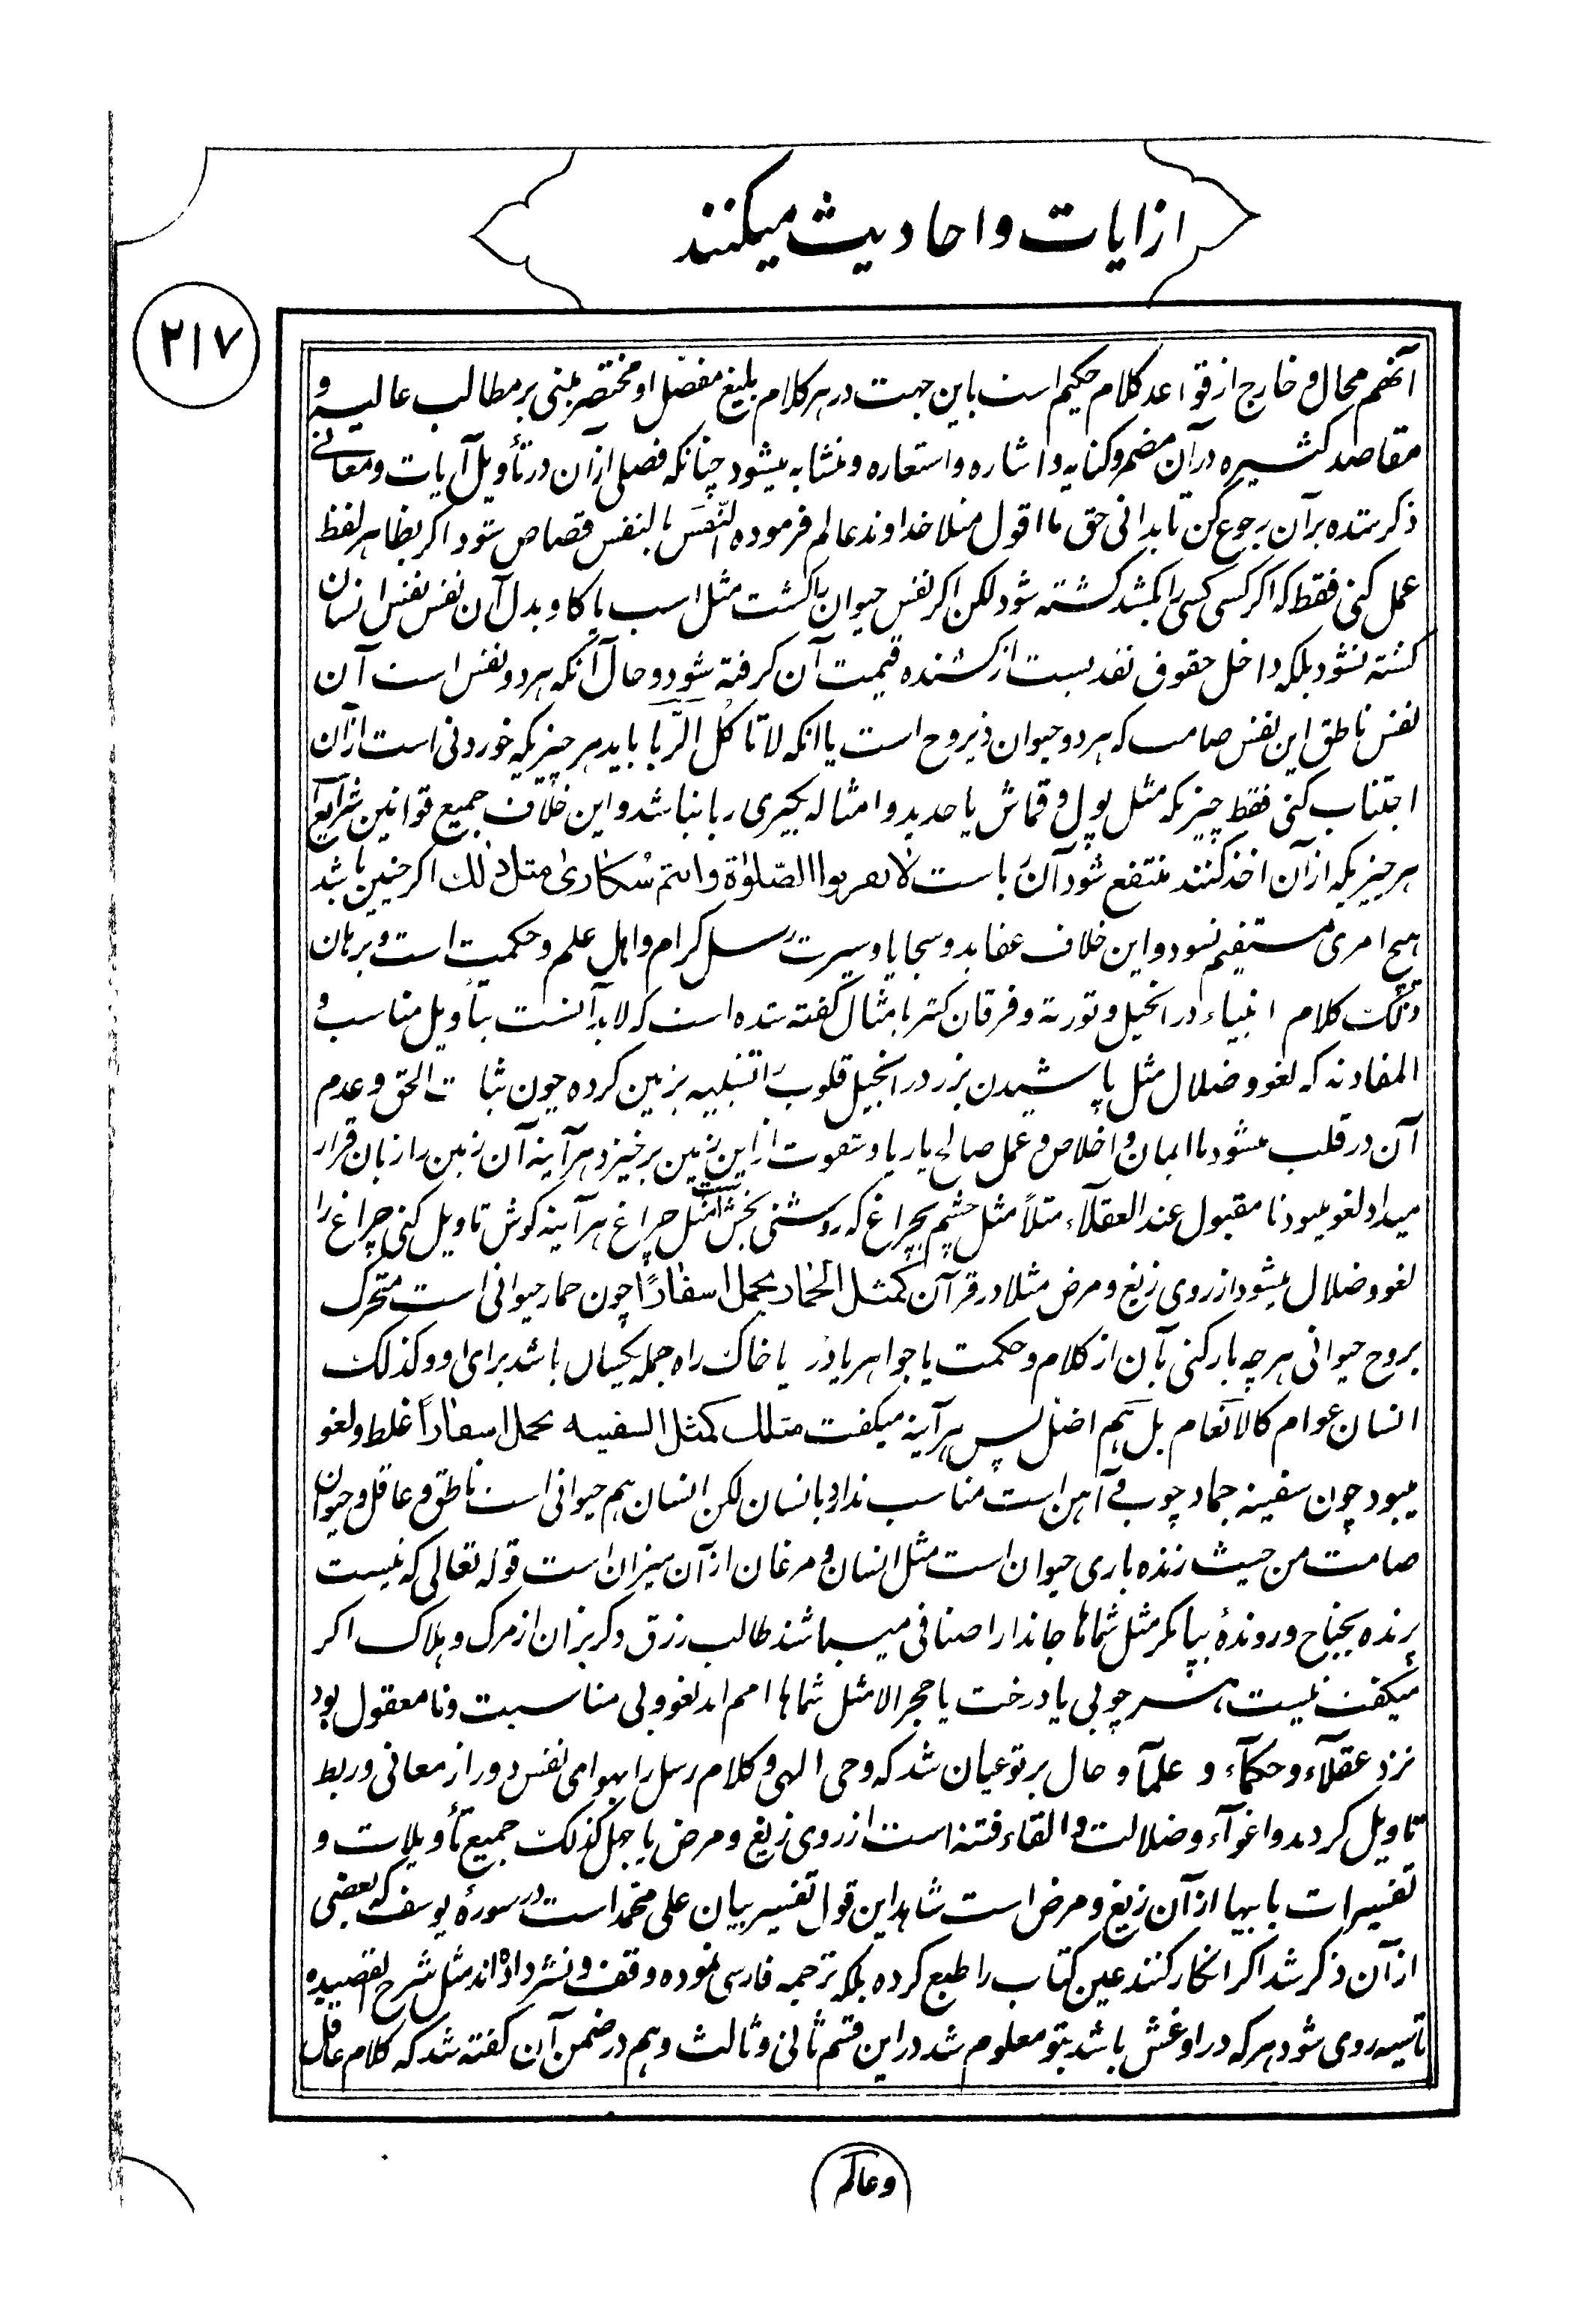 از ایات و احادیث میکنند
۲۱۷
آنهم محال و خارج از قواعد کلام حکیم است باین جهت در هر کلام بلیغ مفصّل او مختصر مبنی بر مطالب عالیه و
مقاصد کثیره در آن مضمر و کنایه و اشاره و استعاره و متشابه میشود چنانکه فصلی از آن در تأویل آیات و معانی
ذکر شده بر آن رجوع کن تا بدانی حق ما اقول مثلا خداوند عالم فرموده النّفسَ بالنفس قصاص شود اکر بظاهر لفظ
عمل کنی فقط که اکر کسی کسی را بکشد کشته شود لکن اکر نفس حیوان را کشت مثل اسب یا کاو بدل آن نفس نفس انسان
کشته نشود بلکه داخل حقوق نقدیست از کشنده قیمت آن کرفته شود و حال آنکه هر دو نفس است آن
نفس ناطق این نفس صامت که هر دو حیوان ذیروح است یا انکه لا تأکل الرّبا باید هر چیزیکه خوردنی است از آن
اجتناب کنی فقط چیزیکه مثل پول و قماش یا حدید و امثاله بکیری ربا نباشد و این خلاف جمیع قوانین شرایع
هر چیزیکه از آن اخذ کنند منتفع شود آن با است لا تقربوا الصّلوٰة و انتم سُکاریٰ مثل ذٰلک اکر چنین باشد
هیچ امری مستقیم نشود و این خلاف عقاید و سجایا و سیرت رسل کرام و اهل علم و حکمیت است و برهان
کلام انبیاء در انجیل و توریة و فرقان کثر بامثال کفته شده است که لابد آنست بتأویل مناسب و
المفاد نه که لغو و ضلال مثل پاشیدن بزر در انجیل قلوب را تشبیه بزمین کرده چون ثبات الحق و عدم
آن در قلب میشود با ایمان و اخلاص و عمل صالح یا ریا و شقوت از این زمین برخیزد هر آینه آن زمین را زبان قرار
میداد لغو میبود نا مقبول عند العقلاء مثلاً مثل چشم بچراغ که روشنی بخش است مثل چراغ هر آینه کوش تاویل کنی چراغ را
لغو و ضلال میشود از روی زیغ و مرض مثلا در قرآن کمثل الحمار یحمل اسفاراً چون حمار حیوانی است متحرک
بروح حیوانی هر چه بار کنی بآن از کلام و حکمت یا جواهر یا خاک راه جمله یکسان باشد برای او و کذلک
انسان عوام کالانعام بل هم اضل پس هر آینه میکفت مثلک کمثل السفینه یحمل اسفاراً غلط و لغو
میبود چون سفینه جماد چوب و آهن است مناسب ندارد بانسان لکن انسان هم حیوانی است ناطق و عاقل و حیوان
صامت من حیث زنده باری حیوان است مثل انسان و مرغان از آن میزان است قوله تعالی که نیست
پرنده بجناح و روندهٔ بپا مکر مثل شماها جاندار اصنافی میباشند طالب رزق و کریزان از مرک و هلاک اکر
میکفت نیست هر چوبی یا درخت یا حجر الا مثل شماها امم اند لغو و بی مناسبت و نا معقول بود
نزد عقلآء و حکمآء و علمآ و حال بر تو عیان شد که وحی الهی و کلام رسل را بهوای نفس دور از معانی و ربط
تاویل کردند و اغوآء و ضلالت و القاء فتنه است از روی زیغ و مرض یا جهل کذلک جمیع تأویلات و
تفسیرات بابیها از آن زیغ و مرض است شاهد این قول تفسیر بیان علی محمّد است در سورهٔ یوسف که بعضی
از آن ذکر شد اکر انکار کنند عین کتاب را طبع کرده بلکه ترجمه فارسی نموده وقف و نشر داده‌اند مثل شرح القصیده
تا سیه روی شود هر که در او غش باشد بتو معلوم شد در این قسم ثانی و ثالث و هم در ضمن آن کفته شد که کلام عاقل
و عالم